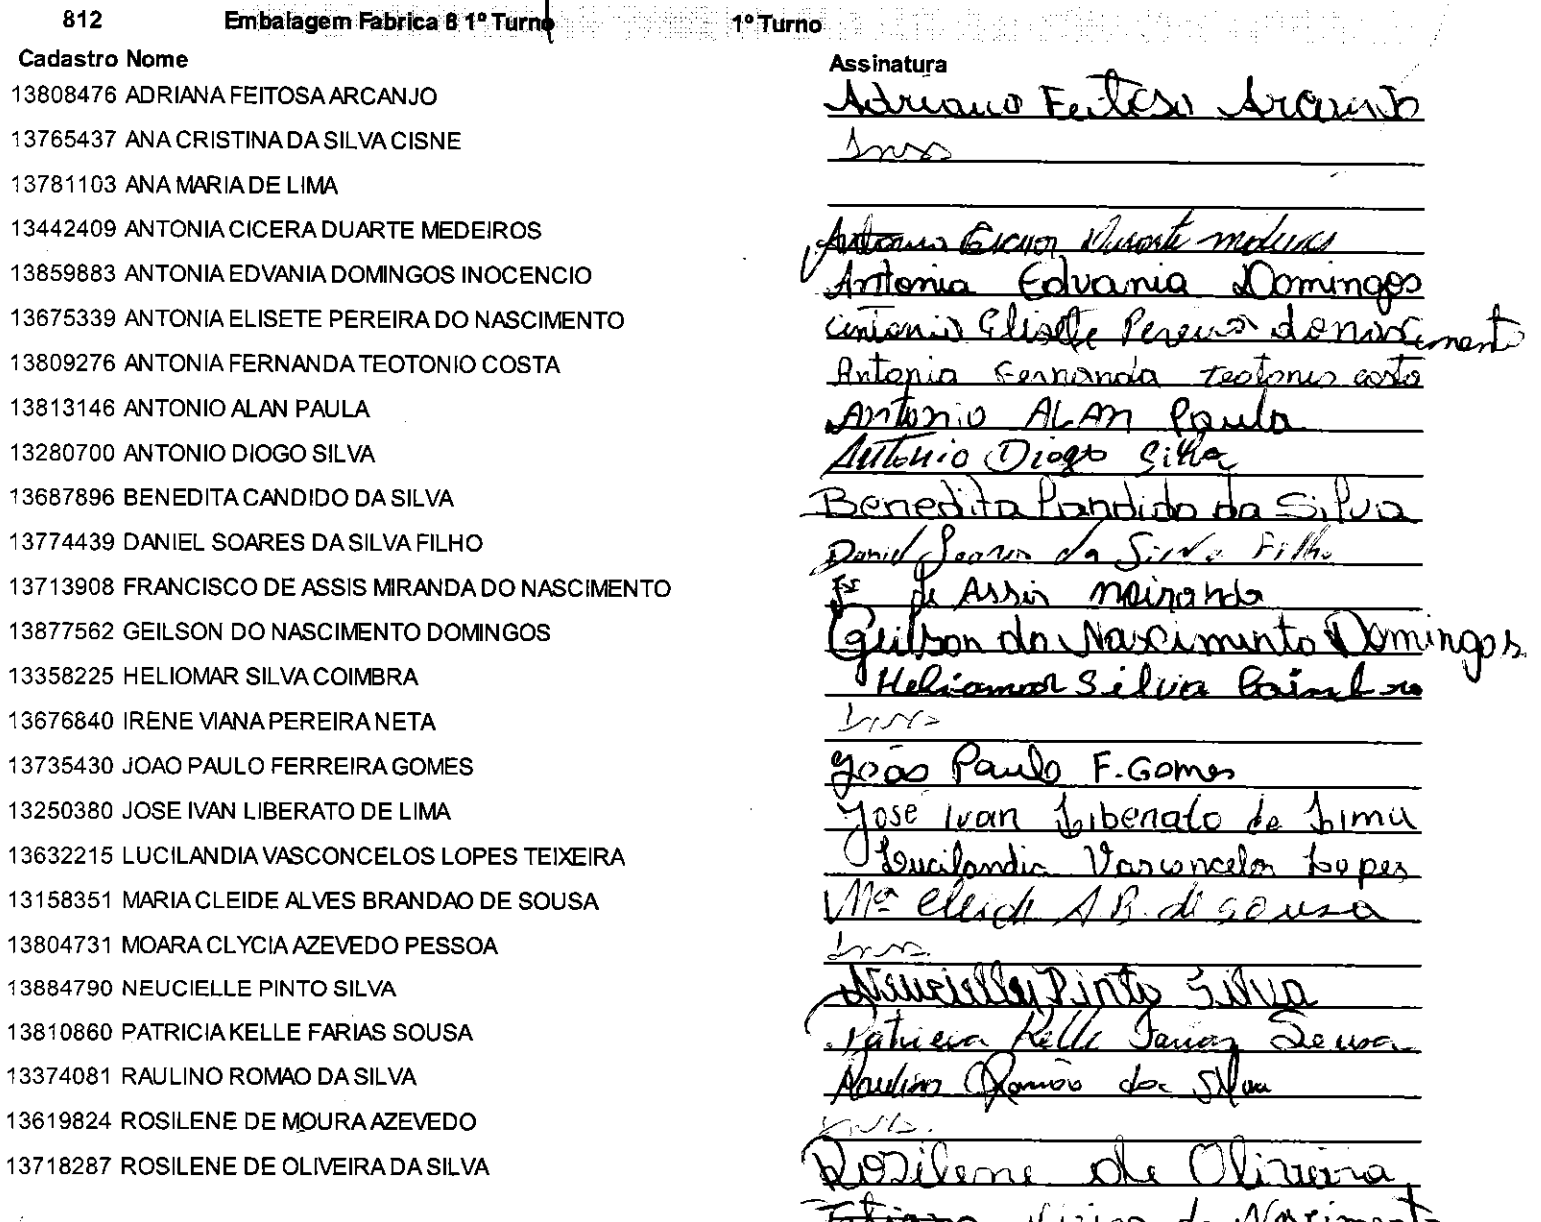 812 Embalagem Fabrica 8 1º Turno 1º Turno
Cadastro Nome Assinatura
13808476 ADRIANA FEITOSA ARCANJO Adriana Feitosa Arcanjo
13765437 ANA CRISTINA DA SILVA CISNE Inss
13781103 ANA MARIA DE LIMA
13442409 ANTONIA CICERA DUARTE MEDEIROS Antonia Cicera Duarte medeiros
13859883 ANTONIA EDVANIA DOMINGOS INOCENCIO Antonia Edvania Domingos
13675339 ANTONIA ELISETE PEREIRA DO NASCIMENTO antonia Elisete Pereira do nascimento
13809276 ANTONIA FERNANDA TEOTONIO COSTA Antonia Fernanda Teotonio costa
13813146 ANTONIO ALAN PAULA Antonio ALAN Paula
13280700 ANTONIO DIOGO SILVA Antonio Diogo Silva
13687896 BENEDITA CANDIDO DA SILVA Benedita Candido da Silva
13774439 DANIEL SOARES DA SILVA FILHO Daniel Soares da Silva Filho
13713908 FRANCISCO DE ASSIS MIRANDA DO NASCIMENTO de Assis Miranda
13877562 GEILSON DO NASCIMENTO DOMINGOS Geilson do Nascimento Domingos
13358225 HELIOMAR SILVA COIMBRA Heliomar Silva Coimbra
13676840 IRENE VIANA PEREIRA NETA Inss
13735430 JOAO PAULO FERREIRA GOMES João Paulo F. Gomes
13250380 JOSE IVAN LIBERATO DE LIMA José Ivan Liberato de Lima
13632215 LUCILANDIA VASCONCELOS LOPES TEIXEIRA Lucilandia Vasconcelos Lopes
13158351 MARIA CLEIDE ALVES BRANDAO DE SOUSA Mª Cleide A B. de Sousa
13804731 MOARA CLYCIA AZEVEDO PESSOA Inss
13884790 NEUCIELLE PINTO SILVA Neucielle Pinto Silva
13810860 PATRICIA KELLE FARIAS SOUSA Patricia Kelle Farias Sousa
13374081 RAULINO ROMAO DA SILVA Raulino Romão da Silva
13619824 ROSILENE DE MOURA AZEVEDO Inss.
13718287 ROSILENE DE OLIVEIRA DA SILVA Rosilene de Oliveira
do Nascimento